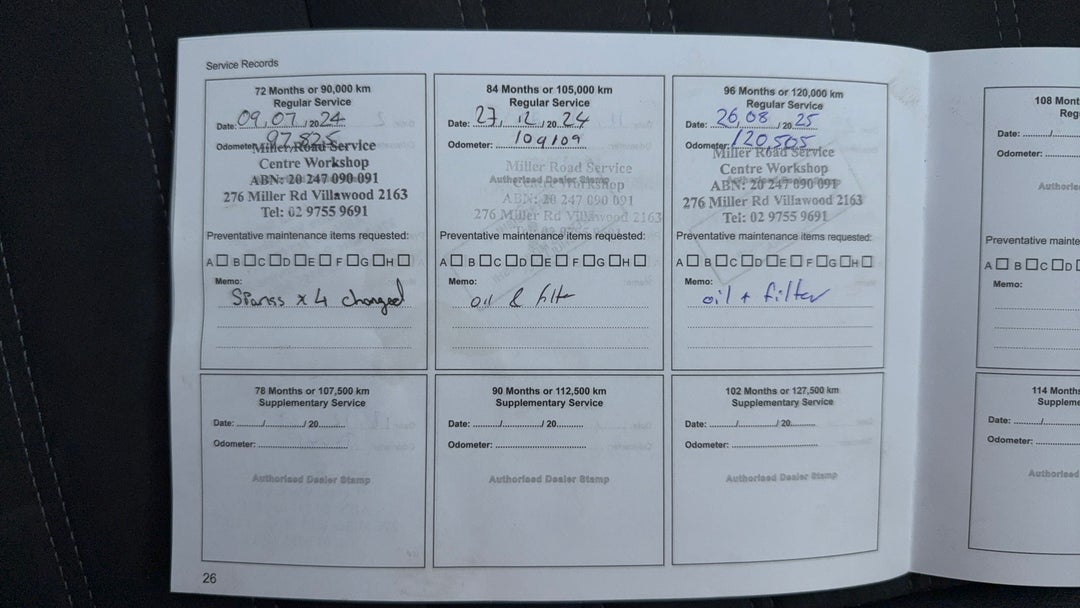 Service Records
72 Months or 90,000 km
Regular Service
Date: 09/07/2024
Odometer: 97,825
Miller Road Service
Centre Workshop
ABN: 20 247 090 091
276 Miller Rd Villawood 2163
Tel: 02 9755 9691
Preventative maintenance items requested:
A B C D E F G H
Memo:
Sparks x 4 changed
84 Months or 105,000 km
Regular Service
Date: 27/12/2024
Odometer: 109109
Authorised Dealer Stamp
Miller Road Service
Centre Workshop
ABN: 20 247 090 091
276 Miller Rd Villawood 2163
Preventative maintenance items requested:
A B C D E F G H
Memo:
oil & filter
96 Months or 120,000 km
Regular Service
Date: 26/08/2025
Odometer: 120,505
Miller Road Service
Centre Workshop
ABN: 20 247 090 091
276 Miller Rd Villawood 2163
Tel: 02 9755 9691
Preventative maintenance items requested:
A B C D E F G H
Memo:
oil + filter
108 Mont
Reg
Date:
Odometer:
Authorise
Preventative mainte
A B C D
Memo:
78 Months or 107,500 km
Supplementary Service
Date: ....../....../ 20......
Odometer:
Authorised Dealer Stamp
90 Months or 112,500 km
Supplementary Service
Date: ....../....../ 20......
Odometer:
Authorised Dealer Stamp
102 Months or 127,500 km
Supplementary Service
Date: ....../....../ 20......
Odometer:
Authorised Dealer Stamp
114 Month
Suppleme
Date:
Odometer:
Authorised
26